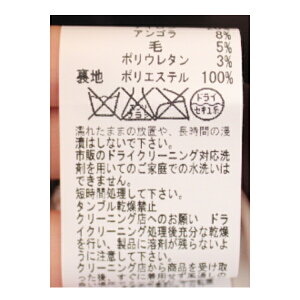 アンゴラ 8%
毛 5%
ポリウレタン 3%
裏地 ポリエステル 100%
ドライ
セキユ系
濡れたままの放置や、長時間の浸
漬はしないで下さい。
市販のドライクリーニング対応洗
剤を用いてのご家庭での水洗いは
できません。
短時間処理して下さい。
タンブル乾燥禁止
クリーニング店へのお願い ドラ
イクリーニング処理後充分な乾燥
を行い、製品に溶剤が残らないよ
うに注意して下さい。
クリーニング店から商品を受け取
った後、すぐに着用